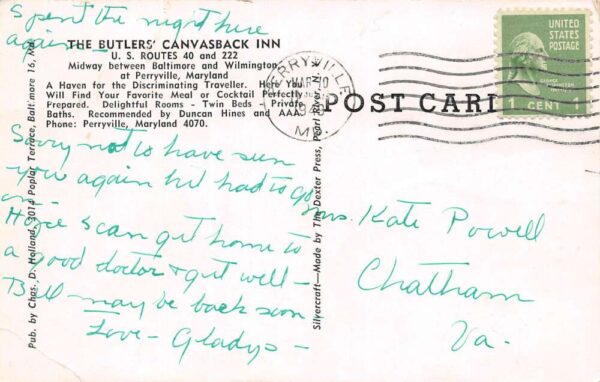 Spent the night here
again -
THE BUTLERS' CANVASBACK INN
U. S. ROUTES 40 and 222
Midway between Baltimore and Wilmington,
at Perryville, Maryland
A Haven for the Discriminating Traveller. Here You
Will Find Your Favorite Meal or Cocktail Perfectly
Prepared. Delightful Rooms - Twin Beds - Private
Baths. Recommended by Duncan Hines and AAA
Phone: Perryville, Maryland 4070.
Sorry not to have seen
you again but had to go
on -
Hope I can get home to
a good doctor & get well -
Bill may be back soon -
Love - Gladys -
Pub. by Chas. D. Holland, 3014 Poplar Terrace, Baltimore 16, Md.
Silvercraft—Made by The Dexter Press, Pearl River, N.
POST CARD
PERRYVILLE
MAR 10
MD.
UNITED
STATES
POSTAGE
GEORGE
WASHINGTON
1 CENT 1
Mrs. Kate Powell
Chatham
Va.